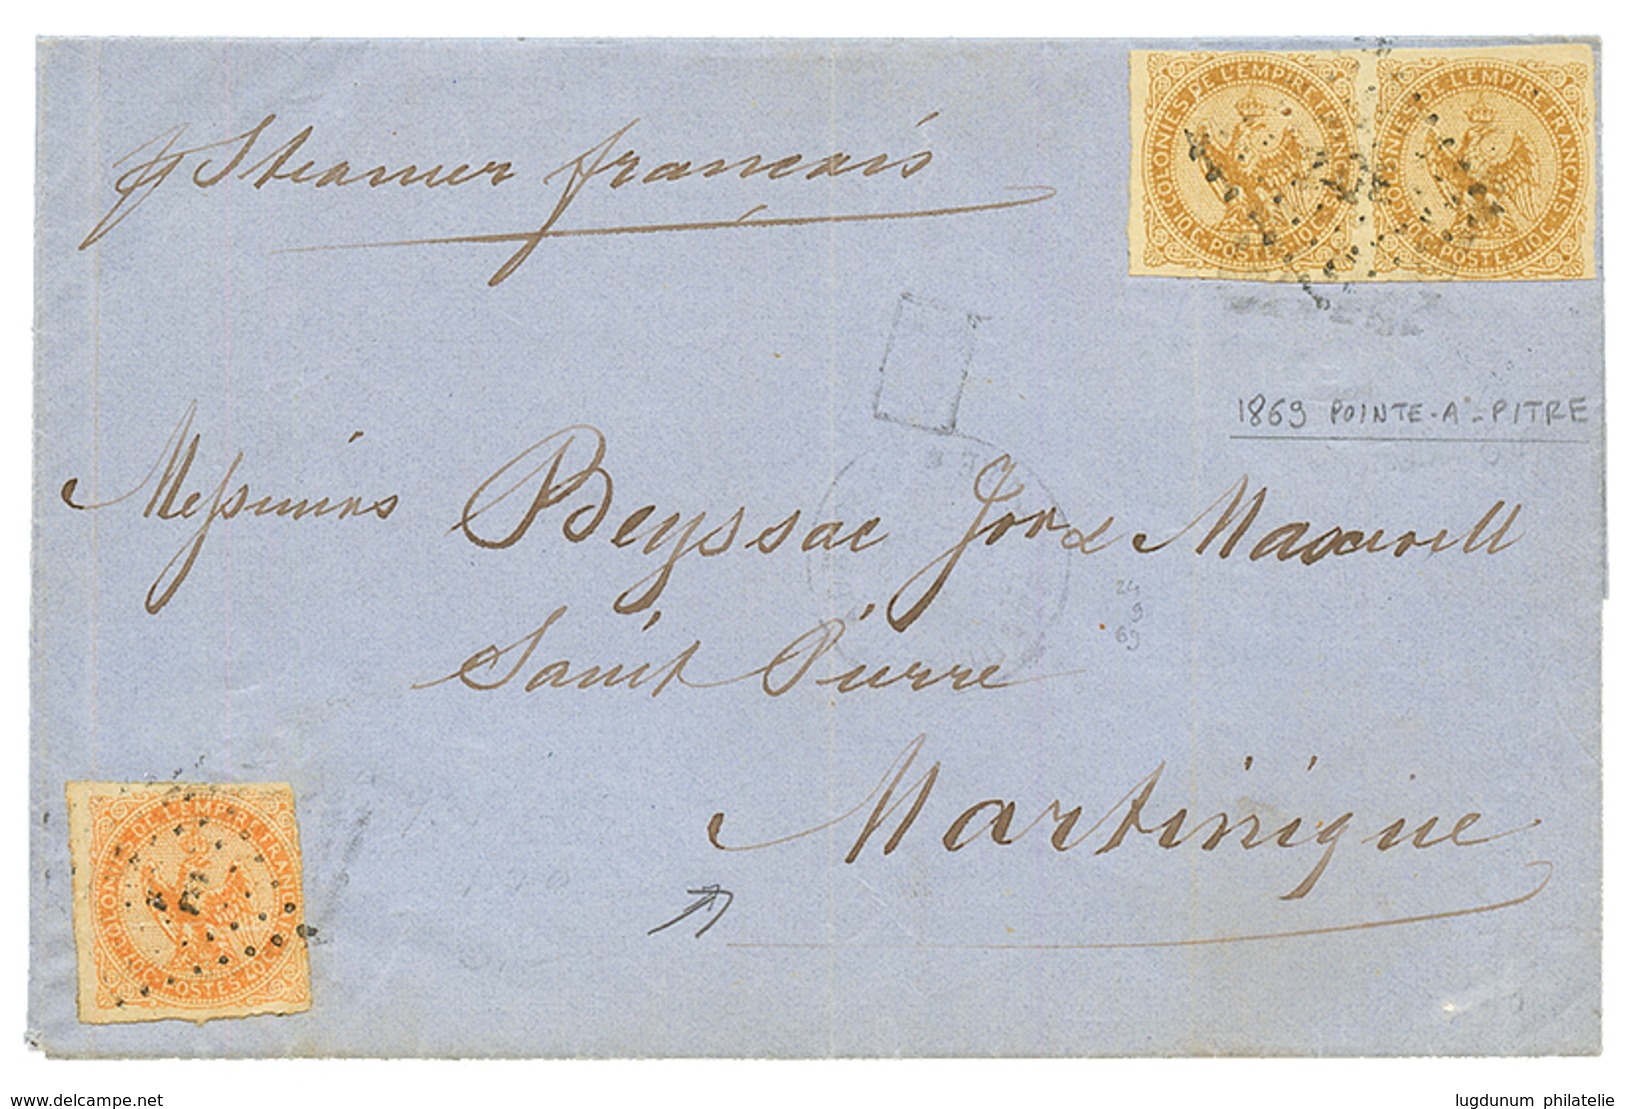 COLONIES DE L'EMPIRE FRANÇAIS
10 C. POSTES 10 C.
COLONIES DE L'EMPIRE FRANÇAIS
10 C. POSTES 10 C.
Steamer français
1869 POINTE-A-PITRE
Messieurs Beyssac Jon & Maxwell
24
9
69
Saint Pierre
Martinique
COLONIES DE L'EMPIRE FRANÇAIS
40 C. POSTES 40 C.
www.delcampe.net
lugdunum philatelie